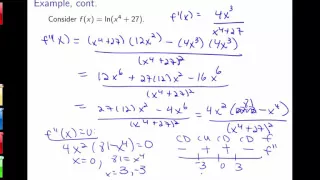 Example, cont.
Consider f(x) = ln(x⁴ + 27).
f'(x) = 4x³ / (x⁴+27)
f"(x) = ((x⁴+27)(12x²) − (4x³)(4x³)) / (x⁴+27)²
= (12x⁶ + 27(12)x² − 16x⁶) / (x⁴+27)²
= (27(12)x² − 4x⁶) / (x⁴+27)² = 4x²( 81 − x⁴) / (x⁴+27)²
f"(x)=0
4x²(81−x⁴)=0
x=0, 81=x⁴
x=3,−3
CD CU CU CD f
− + + − f"
−3 0 3